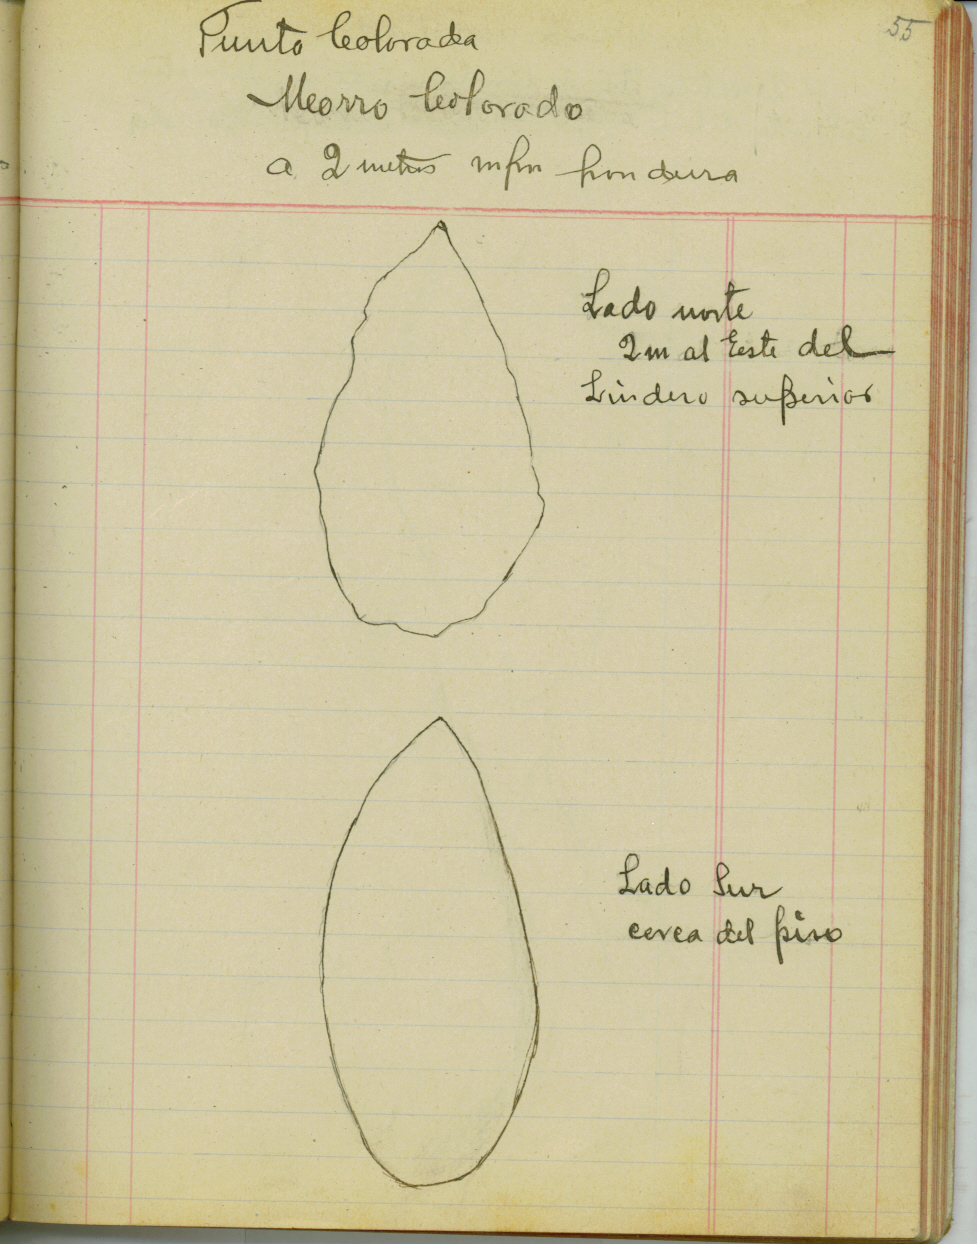 55
Punta Colorada
Morro Colorado
a 2 metros hondura
Lado norte
2m al Este del
Lindero superior
Lado Sur
cerca del piso